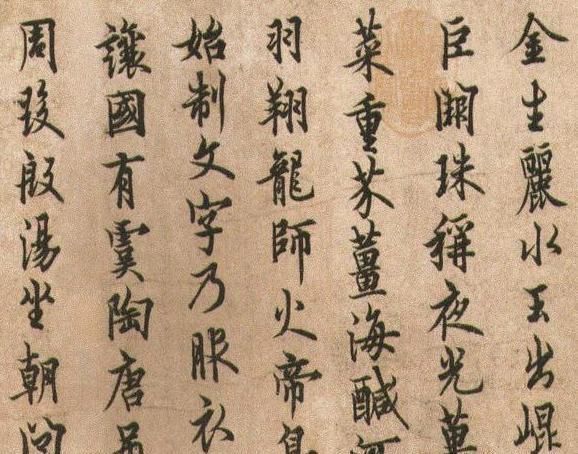 金生麗水玉出崐
巨闕珠稱夜光菓
菜重芥薑海醎河
羽翔龍師火帝鳥
始制文字乃服衣
讓國有虞陶唐弔
周發殷湯坐朝問